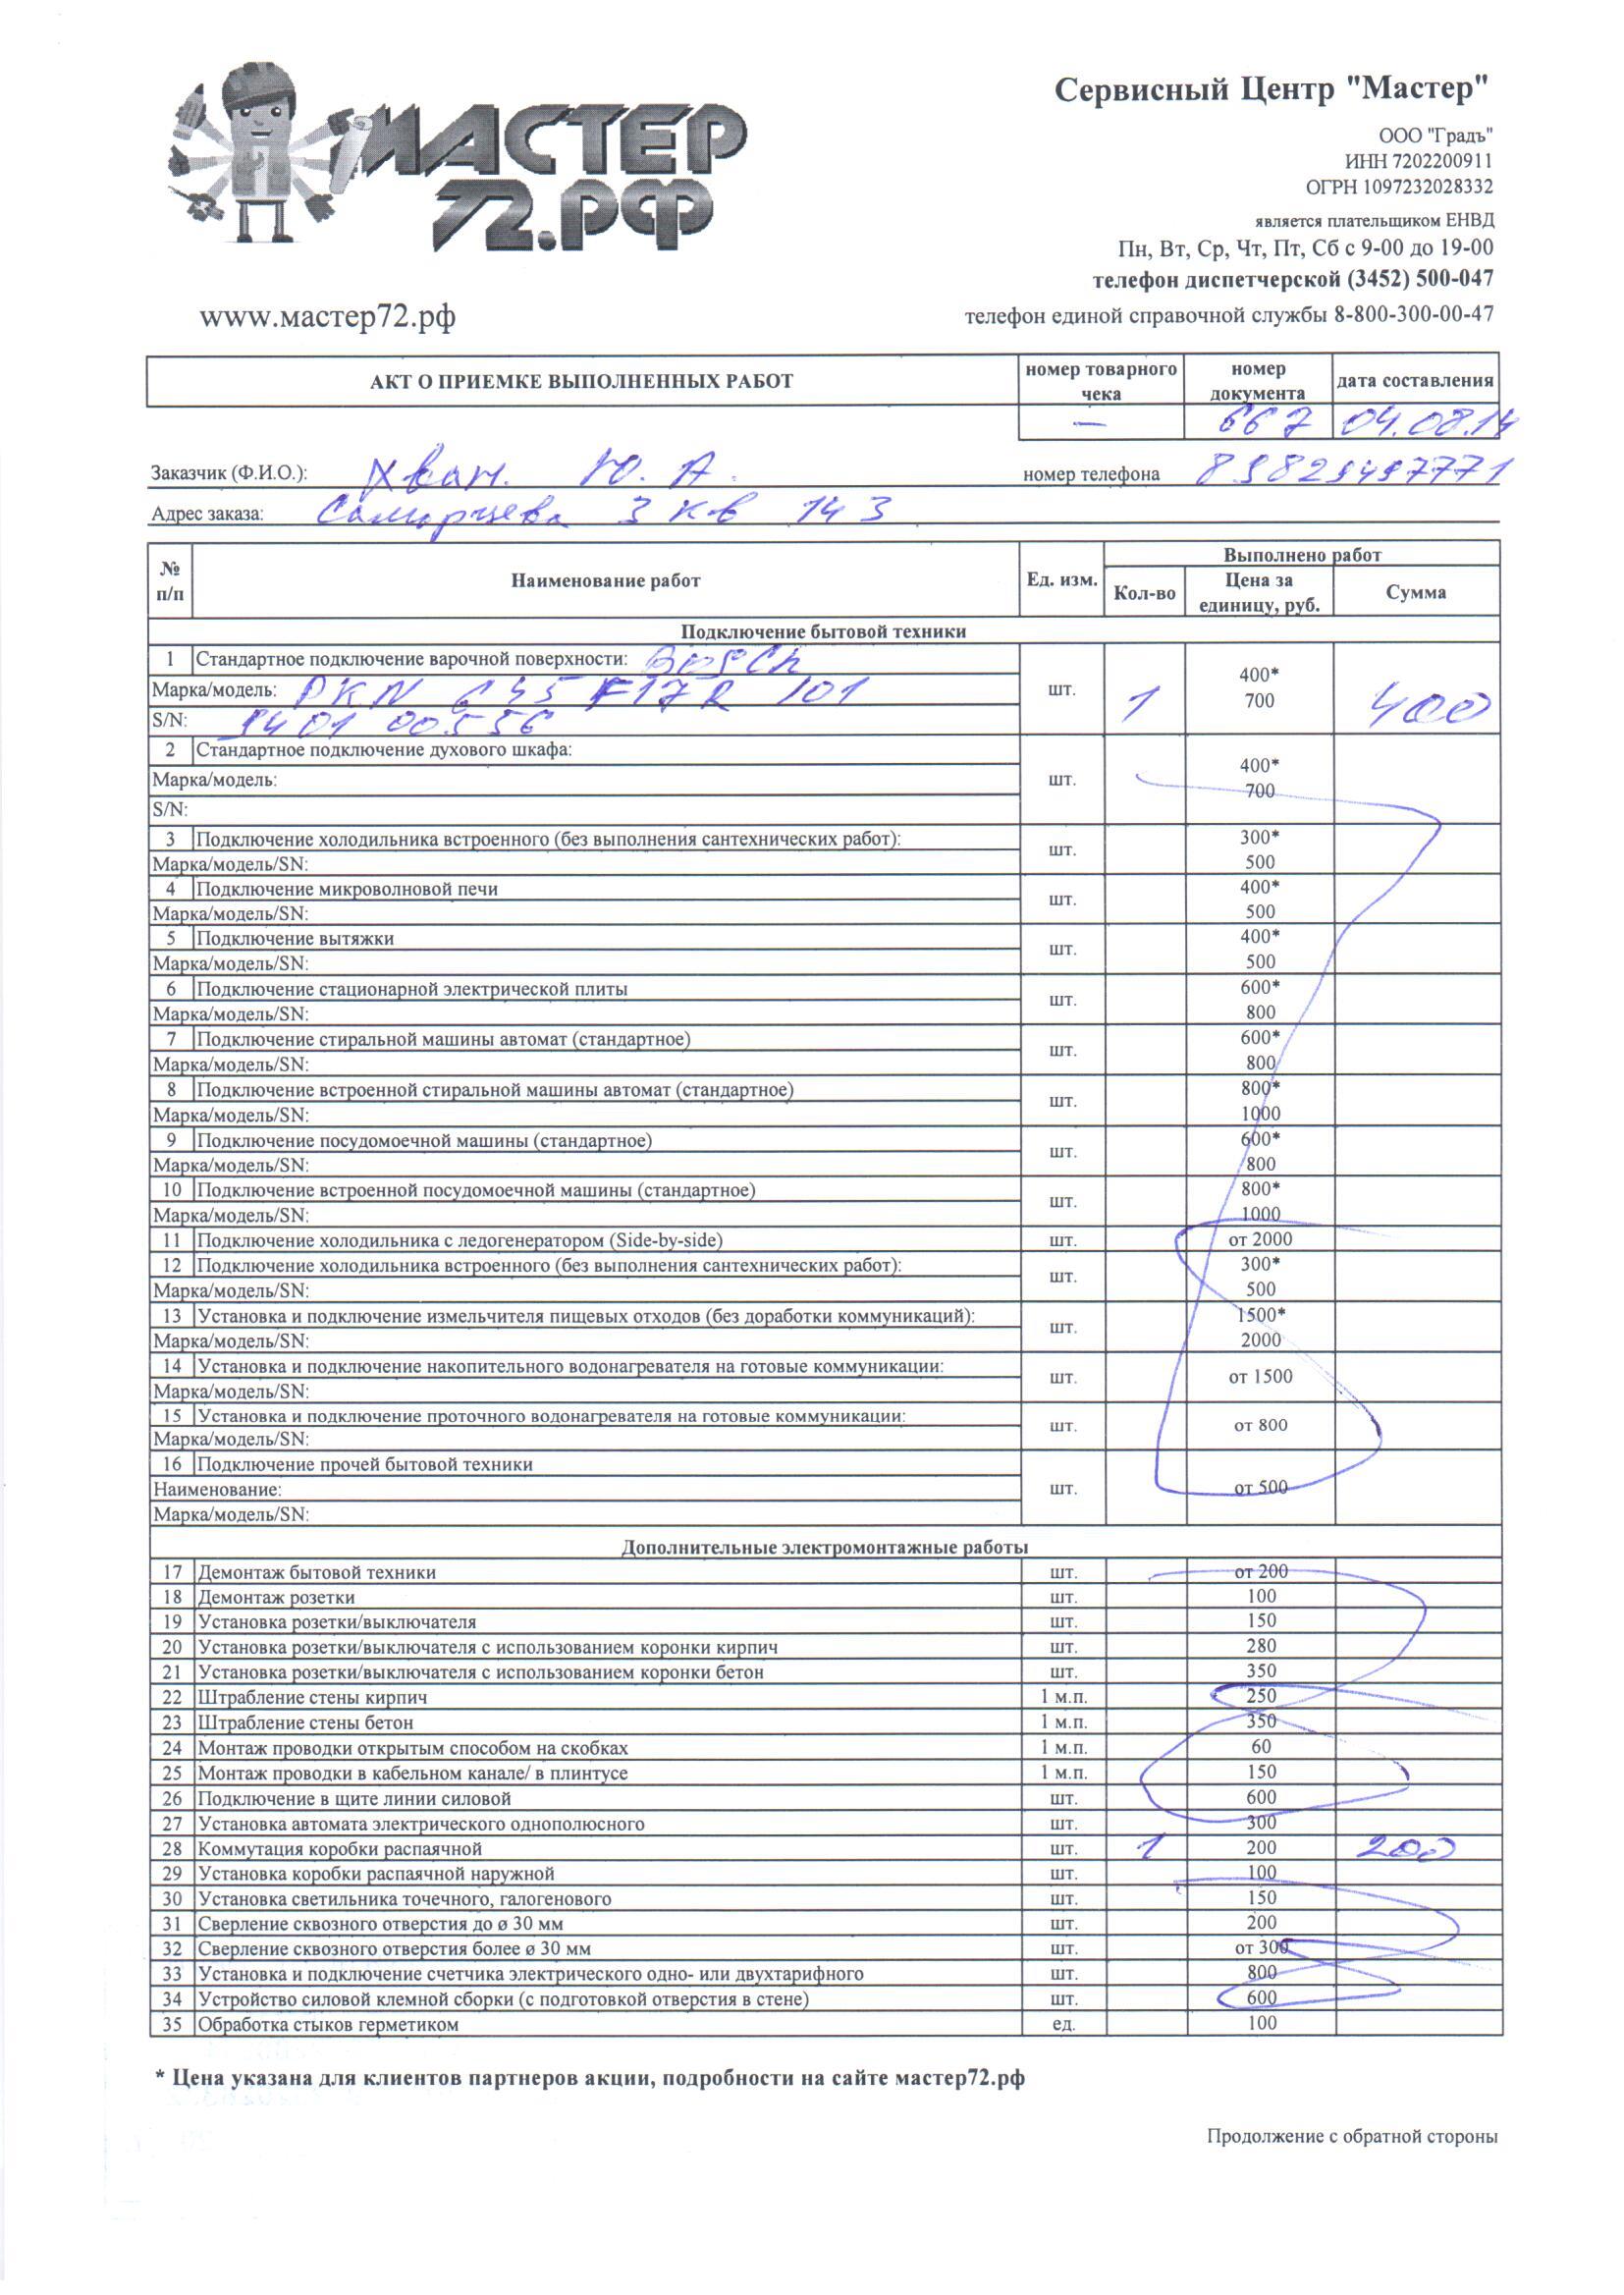 МАСТЕР
72.РФ
www.мастер72.рф
Сервисный Центр "Мастер"
ООО "Градъ"
ИНН 7202200911
ОГРН 1097232028332
является плательщиком ЕНВД
Пн, Вт, Ср, Чт, Пт, Сб с 9-00 до 19-00
телефон диспетчерской (3452) 500-047
телефон единой справочной службы 8-800-300-00-47
АКТ О ПРИЕМКЕ ВЫПОЛНЕННЫХ РАБОТ номер товарного чека номер документа дата составления
— 667 04.08.14
Заказчик (Ф.И.О.): Хван. Ю. А. номер телефона
Адрес заказа: 3 кв 143
№ п/п Наименование работ Ед. изм. Выполнено работ
Кол-во Цена за единицу, руб. Сумма
Подключение бытовой техники
1 Стандартное подключение варочной поверхности: BOSCH шт. 1 400* 700 400
Марка/модель: PKN 645 F17R 101
S/N: 9401 00556
2 Стандартное подключение духового шкафа: шт. 400* 700
Марка/модель:
S/N:
3 Подключение холодильника встроенного (без выполнения сантехнических работ): шт. 300* 500
Марка/модель/SN:
4 Подключение микроволновой печи шт. 400* 500
Марка/модель/SN:
5 Подключение вытяжки шт. 400* 500
Марка/модель/SN:
6 Подключение стационарной электрической плиты шт. 600* 800
Марка/модель/SN:
7 Подключение стиральной машины автомат (стандартное) шт. 600* 800
Марка/модель/SN:
8 Подключение встроенной стиральной машины автомат (стандартное) шт. 800* 1000
Марка/модель/SN:
9 Подключение посудомоечной машины (стандартное) шт. 600* 800
Марка/модель/SN:
10 Подключение встроенной посудомоечной машины (стандартное) шт. 800* 1000
Марка/модель/SN:
11 Подключение холодильника с ледогенератором (Side-by-side) шт. от 2000
12 Подключение холодильника встроенного (без выполнения сантехнических работ): шт. 300* 500
Марка/модель/SN:
13 Установка и подключение измельчителя пищевых отходов (без доработки коммуникаций): шт. 1500* 2000
Марка/модель/SN:
14 Установка и подключение накопительного водонагревателя на готовые коммуникации: шт. от 1500
Марка/модель/SN:
15 Установка и подключение проточного водонагревателя на готовые коммуникации: шт. от 800
Марка/модель/SN:
16 Подключение прочей бытовой техники шт. от 500
Наименование:
Марка/модель/SN:
Дополнительные электромонтажные работы
17 Демонтаж бытовой техники шт. от 200
18 Демонтаж розетки шт. 100
19 Установка розетки/выключателя шт. 150
20 Установка розетки/выключателя с использованием коронки кирпич шт. 280
21 Установка розетки/выключателя с использованием коронки бетон шт. 350
22 Штрабление стены кирпич 1 м.п. 250
23 Штрабление стены бетон 1 м.п. 350
24 Монтаж проводки открытым способом на скобках 1 м.п. 60
25 Монтаж проводки в кабельном канале/ в плинтусе 1 м.п. 150
26 Подключение в щите линии силовой шт. 600
27 Установка автомата электрического однополюсного шт. 300
28 Коммутация коробки распаячной шт. 1 200 200
29 Установка коробки распаячной наружной шт. 100
30 Установка светильника точечного, галогенового шт. 150
31 Сверление сквозного отверстия до ø 30 мм шт. 200
32 Сверление сквозного отверстия более ø 30 мм шт. от 300
33 Установка и подключение счетчика электрического одно- или двухтарифного шт. 800
34 Устройство силовой клемной сборки (с подготовкой отверстия в стене) шт. 600
35 Обработка стыков герметиком ед. 100
* Цена указана для клиентов партнеров акции, подробности на сайте мастер72.рф
Продолжение с обратной стороны